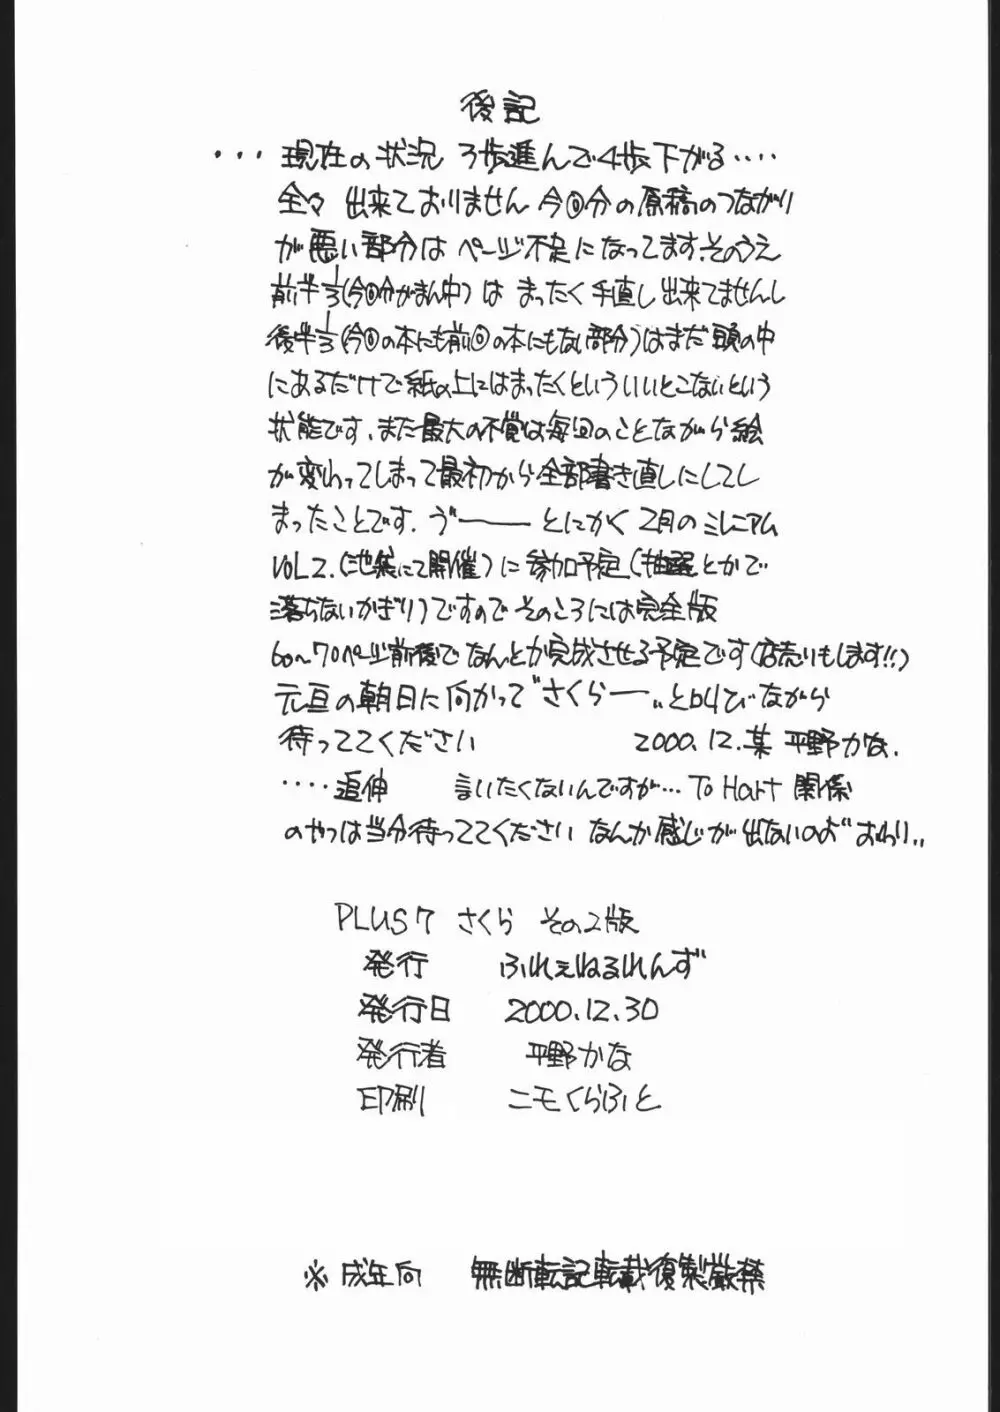 後記
・・・現在の状況 3歩進んで4歩下がる・・・・
全々 出来ておりません 今回分の原稿のつながり
が悪い部分は ページ不足になってます.そのうえ
前半1/3(今回分がまん中)は まったく手直し出来てませんし
後半1/3(今回の本にも前回の本にもない部分)はまだ頭の中
にあるだけで紙の上にはまったくといういいとこないという
状態です、また最大の不覚は毎回のことながら絵
が変わってしまって最初から全部書き直しにしてし
まったことです. ゔ━━━ とにかく 2月のミレニアム
VOL2.(池袋にて開催)に参加予定(抽選とかで
落ちないかぎり)ですのでそのころには完全版
60〜70ページ前後でなんとか完成させる予定です(店売りもします!!)
元旦の朝日に向かって"さくらー"と叫びながら
待っててください 2000.12.某 平野かな.
・・・・追伸 言いたくないんですが… To Hart 関係
のやつは当分待っててください なんか感じが出ないのよ" おわり..
PLUS7 さくら その2版
発行 ふれぇねるれんず
発行日 2000.12.30
発行者 平野かな
印刷 ニモくらふと
※成年向 無断転記転載復製厳禁